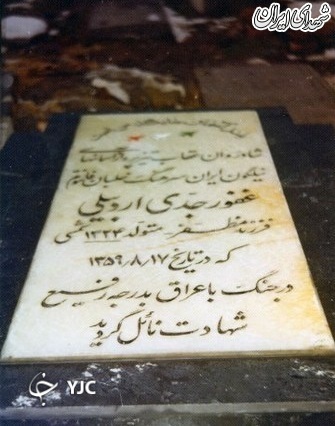 شهدای ایران
شادروان عقاب تیزپرواز آسمانهای
نیلگون ایران سرهنگ خلبان
غفور جدی اردبیلی
فرزند مظفر متولد ۱۳۲۴ شمسی
که در تاریخ ۱۳۵۹/۸/۱۷
در جنگ با عراق بدرجه رفیع
شهادت نائل گردید
YJC